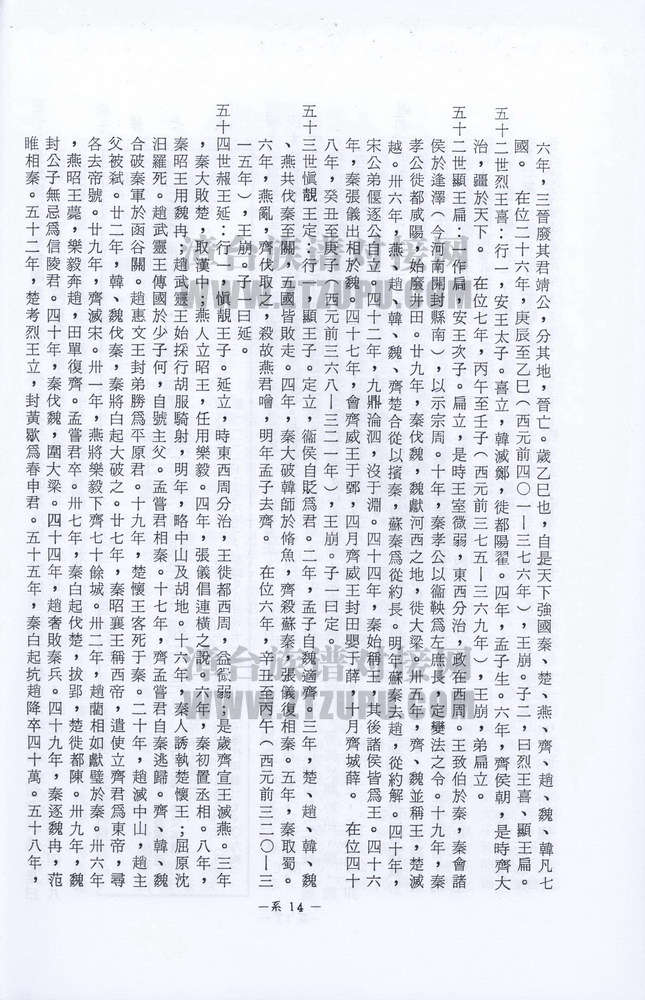 六年，三晉廢其君靖公，分其地，晉亡。歲乙巳也，自是天下強國秦、楚、燕、齊、趙、魏、韓凡七
國。 在位二十六年，庚辰至乙巳（西元前四〇一—三七六年），王崩。子二，曰烈王喜、顯王扁。
五十二世烈王喜：行一，安王太子。喜立，韓滅鄭，徙都陽翟。四年，孟子生。六年，齊侯朝，是時齊大
治，疆於天下。 在位七年，丙午至壬子（西元前三七五—三六九年），王崩，弟扁立。
五十二世顯王扁：一作扁，安王次子。扁立，是時王室微弱，東西分治，政在西周。王致伯於秦，秦會諸
侯於逢澤（今河南開封縣南），以示宗周。十年，秦孝公以衞鞅為左庶長，定變法之令。十九年，秦
孝公徙都咸陽，始廢井田。廿九年，秦伐魏，魏獻河西之地，徙大梁。卅五年，齊、魏並稱王，楚滅
越。卅六年，燕、趙、韓、魏、齊楚合從以擯秦，蘇秦為從約長。明年蘇秦去趙，從約解。四十年，
宋公弟偃逐公自立。四十二年，九鼎淪泗，沒于淵。四十四年，秦始稱王，其後諸侯皆為王。四十六
年，秦張儀出相於魏。四十七年，會齊威王于鄄，四月齊威王封田嬰于薛，十月齊城薛。 在位四十
八年，癸丑至庚子（西元前三六八—三二一年），王崩。子一曰定。
五十三世慎靚王定：行一，顯王子。定立，衞侯自貶為君。二年，孟子自魏適齊。三年，楚、趙、韓、魏
、燕共伐秦至關，五國皆敗走。四年，秦大破韓師於脩魚，齊殺蘇秦，張儀復相秦。五年，秦取蜀。
六年，燕亂，齊伐取之，殺故燕君噲，明年孟子去齊。 在位六年，辛丑至丙午（西元前三二〇—三
一五年），王崩。子一曰延。
五十四世赧王延：行一，慎靚王子。延立，時東西周分治，王徙都西周，益微弱，是歲齊宣王滅燕。三年
，秦大敗楚，取漢中；燕人立昭王，任用樂毅。四年，張儀倡連橫之說。六年，秦初置丞相。八年，
秦昭王用魏冉；趙武靈王始採行胡服騎射，明年，略中山及胡地。十六年，秦人誘執楚懷王；屈原沈
汨羅死。趙武靈王傳國於少子何，自號主父。孟嘗君相秦。十七年，齊孟嘗君自秦逃歸。齊、韓、魏
合破秦軍於函谷關。趙惠文王封弟勝為平原君。十九年，楚懷王客死于秦。二十年，趙滅中山，趙主
父被弒。廿二年，韓、魏伐秦，秦將白起大破之。廿七年，秦昭襄王稱西帝，遣使立齊君為東帝，尋
各去帝號。廿九年，齊滅宋。卅一年，燕將樂毅下齊七十餘城。卅二年，趙藺相如獻璧於秦。卅六年
，燕昭王薨，樂毅奔趙，田單復齊。孟嘗君卒。卅七年，秦白起伐楚，拔郢，楚徙都陳。卅九年，魏
封公子無忌為信陵君。四十年，秦伐魏，圍大梁。四十四年，趙奢敗秦兵。四十九年，秦逐魏冉，范
睢相秦。五十二年，楚考烈王立，封黃歇為春申君。五十五年，秦白起坑趙降卒四十萬。五十八年，
— 系 14 —
浮台族谱对接网
WWW.ZTZUPU.COM
浮台族谱对接网
WWW.ZTZUPU.COM